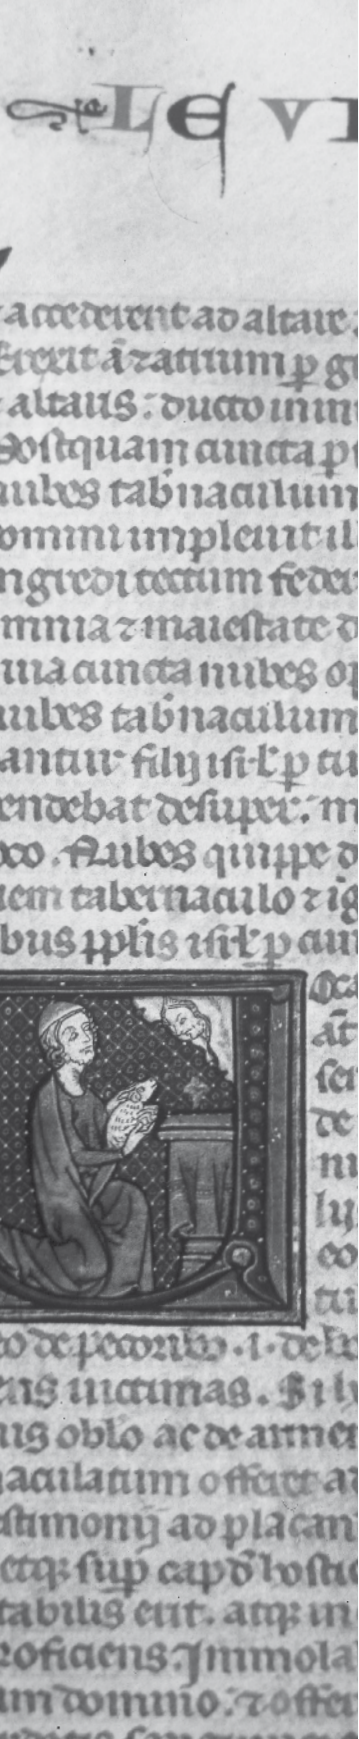 LE VI
accederent ad altare
erexit a⁊atrium p̱ g
altaris: ducto in in
postquam cuncta p
nubes tab̓naculum
omini impleuit il
ngredi tectum feder
mnia ⁊ maiestate d
uia cuncta nubes op
nubes tab̓naculum
antur filij isr̄l p̱ tu
endebat desuper: in
oco. Nubes quippe d
iem tabernaculo ⁊ ig
bus pplis isr̄l p̱ cun
oca
āt
ser
de
ni
lys
eo
tu
eo de pecorib; .i. de b
ens uictimas. Si h
us oblō ac de armen
aculatum offeret ad
stimonij ad placan
etq; sup̄ cap̄d hostie
tabilis erit. atq; in
roficiens. Immola
um domino: ⁊ offer